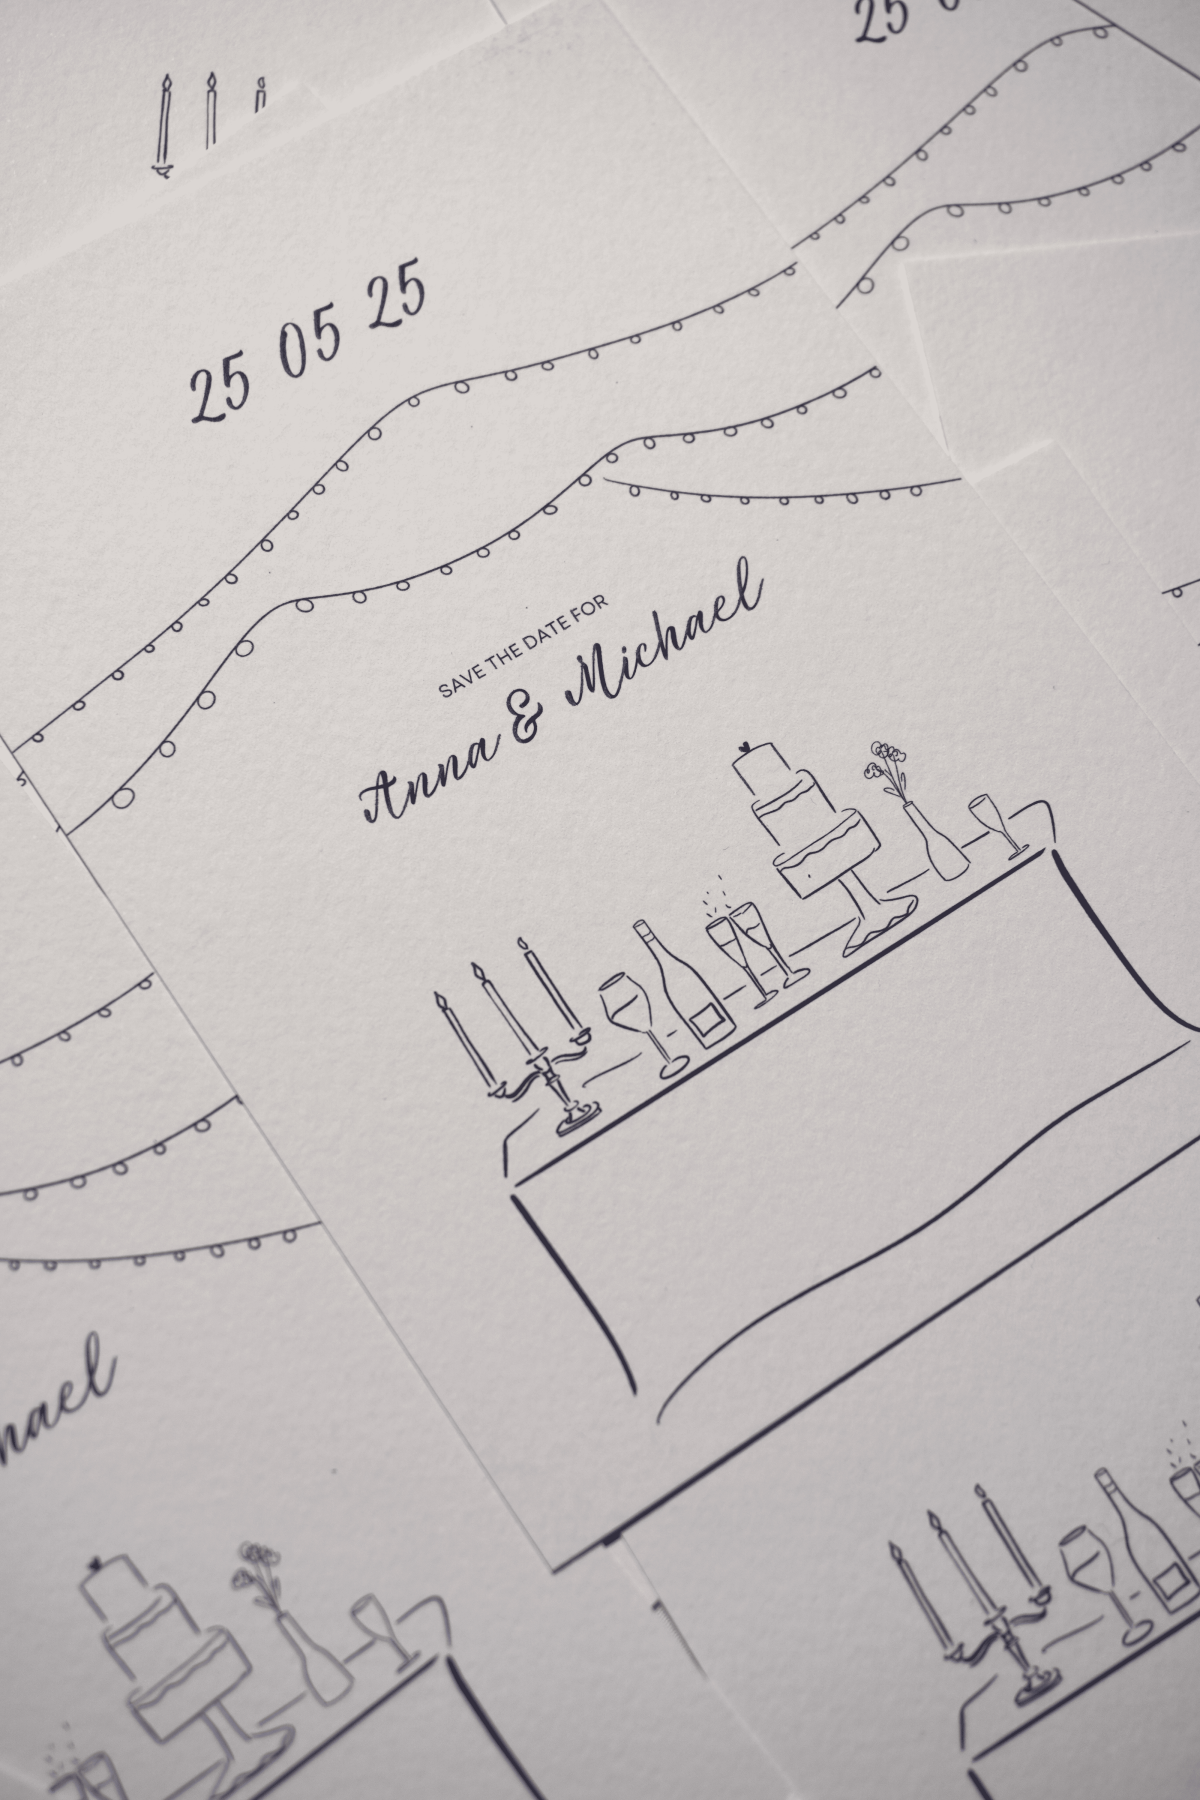 25 0
25 05 25
SAVE THE DATE FOR
Anna & Michael
hael